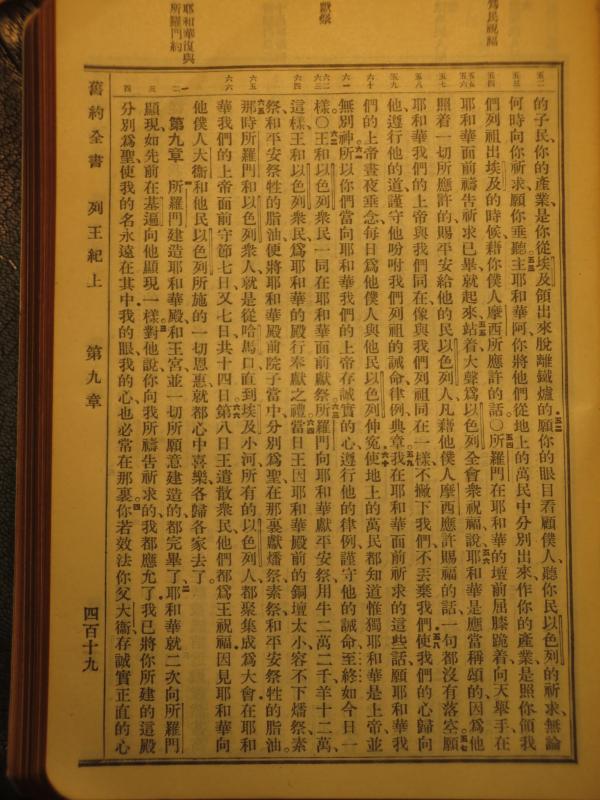 爲民祝福
獻祭
耶和華復與
所羅門約
的子民、你的產業、是你從埃及領出來脫離鐵爐的。願你的眼目看顧僕人、聽你民以色列的祈求、無論
何時向你祈求、願你垂聽。主耶和華阿、你將他們從地上的萬民中分別出來、作你的產業、是照你領我
們列祖出埃及的時候、藉你僕人摩西所應許的話。〇所羅門在耶和華的壇前屈膝跪着、向天舉手、在
耶和華面前禱告祈求已畢、就起來、站着、大聲爲以色列全會衆祝福、說、耶和華是應當稱頌的、因爲他
照着一切所應許的、賜平安給他的民以色列人、凡藉他僕人摩西應許賜福的話、一句都沒有落空。願
耶和華我們的上帝與我們同在、像與我們列祖同在一樣、不撇下我們、不丟棄我們、使我們的心歸向
他、遵行他的道、謹守他吩咐我們列祖的誡命律例典章。我在耶和華面前祈求的這些話、願耶和華我
們的上帝晝夜垂念、每日爲他僕人與他民以色列伸冤、使地上的萬民、都知道惟獨耶和華是上帝、並
無別神。所以你們當向耶和華我們的上帝、存誠實的心、遵行他的律例、謹守他的誡命、至終如今日一
樣。〇王和以色列衆民、一同在耶和華面前獻祭。所羅門向耶和華獻平安祭、用牛二萬二千、羊十二萬、
這樣、王和以色列衆民爲耶和華的殿行奉獻之禮。當日王因耶和華殿前的銅壇太小、容不下燔祭、素
祭、和平安祭牲的脂油、便將耶和華殿前院子當中分別爲聖、在那裏獻燔祭、素祭、和平安祭牲的脂油。
那時所羅門和以色列衆人、就是從哈馬口直到埃及小河所有的以色列人、都聚集成爲大會、在耶和
華我們的上帝面前守節七日、又七日、共十四日。第八日王遣散衆民、他們都爲王祝福、因見耶和華向
他僕人大衞和他民以色列所施的一切恩惠、就都心中喜樂、各歸各家去了。
第九章 所羅門建造耶和華殿、和王宮、並一切所願意建造的都完畢了、耶和華就二次向所羅門
顯現、如先前在基遍向他顯現一樣、對他說、你向我所禱告祈求的、我都應允了、我已將你所建的這殿
分別爲聖、使我的名永遠在其中、我的眼、我的心、也必常在那裏。你若效法你父大衞、存誠實正直的心
舊約全書 列王紀上 第九章 四百十九